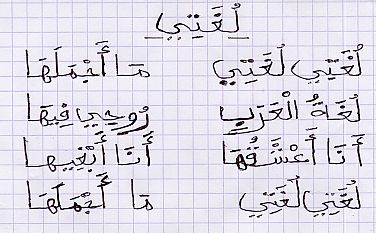 لُغَتِي
لُغَتِي لُغَتِي مَا أَجْمَلَهَا
لُغَةُ الْعَرَبِ رُوحِي فِيهَا
أَنَا أَعْشَقُهَا أَنَا أَبْغِيهَا
لُغَتِي لُغَتِي مَا أَجْمَلَهَا